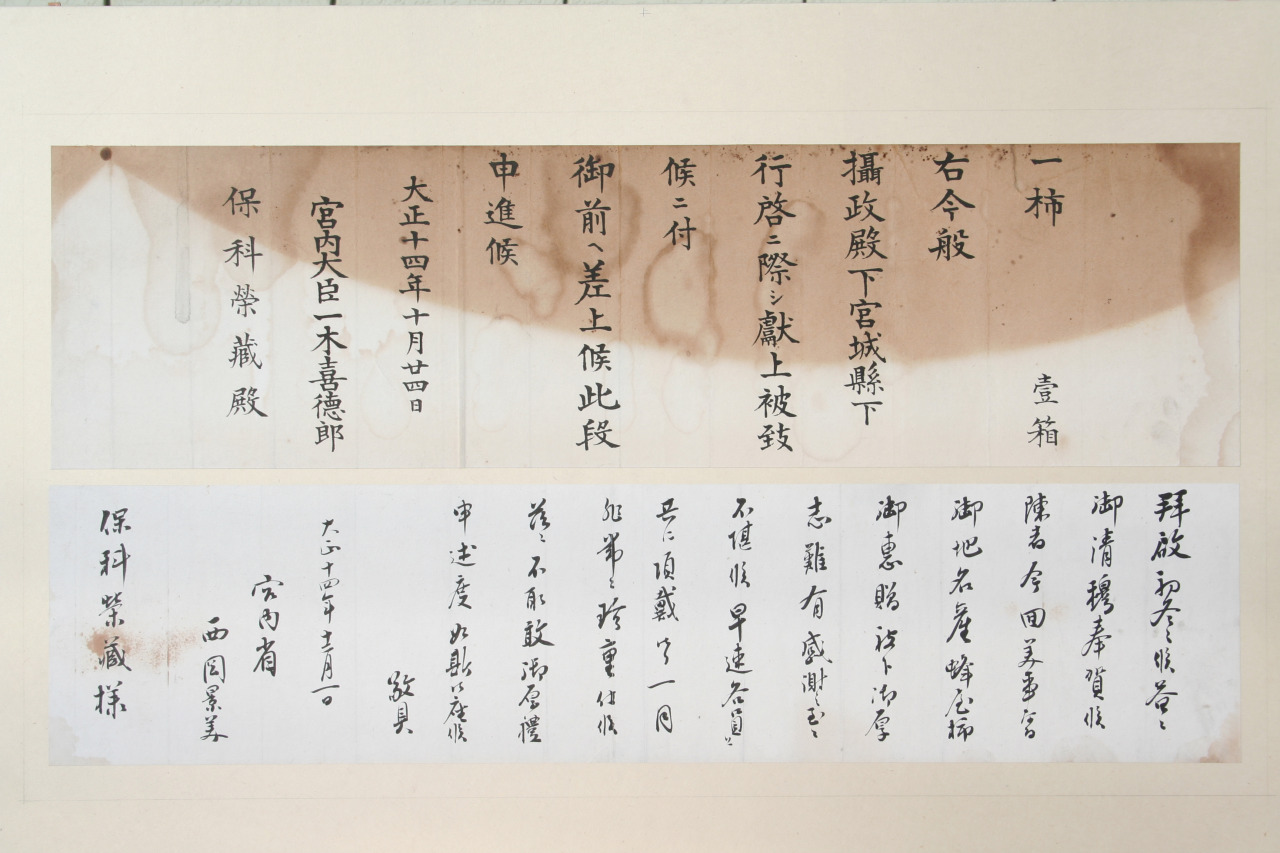 一柿 壹箱
右今般
攝政殿下宮城縣下
行啓ニ際シ獻上被致
候ニ付
御前ヘ差上候此段
申進候
大正十四年十月廿四日
宮内大臣一木喜德郎
保科榮藏殿
拜啓初冬之候益々
御清穆奉賀候
陳者今回美事ナル
御地名産蜂屋柿
御惠贈被下御厚
志難有感謝之至ニ
不堪候早速各員ニ
共ニ頂戴シテ一同
非常ニ珍重仕候
茲ニ不取敢御厚禮
申述度如斯御座候
敬具
大正十四年十二月一日
宮内省
西岡景美
保科榮藏樣